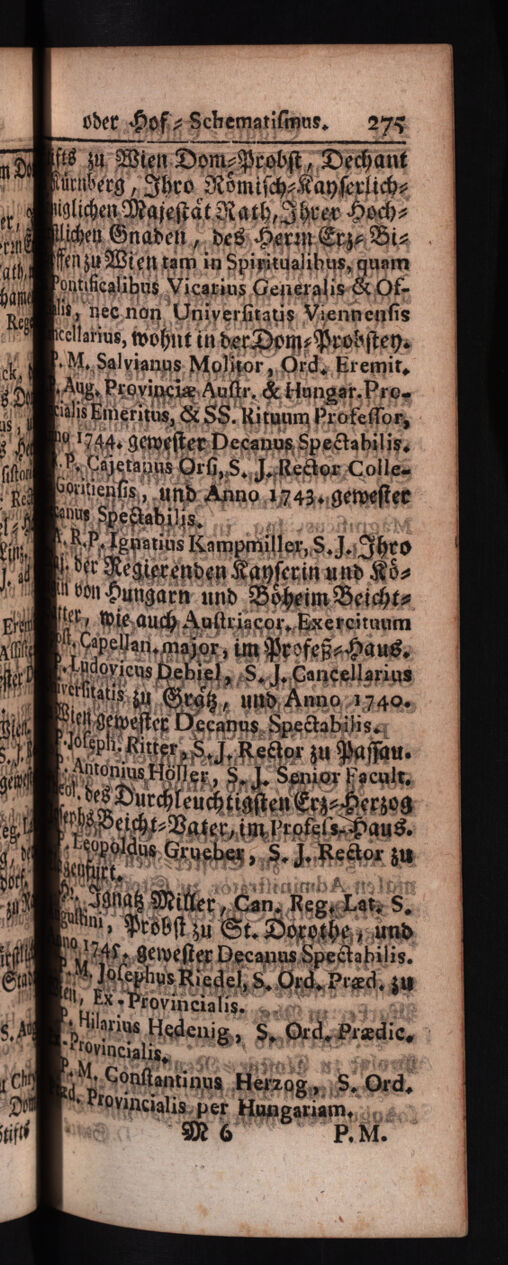 oder Hof-Schematismus. 275
zu Wien Dom-Probst, Dechant
Nürnberg, Ihro Römisch-Kayserlich-
Majestät Rath, Ihrer Hoch-
Gnaden, des Herrn Erz-Bi-
zu Wien tam in Spiritualibus, quam
Pontificalibus Vicarius Generalis & Of-
nec non Universitatis Viennensis
wohnt in der Dom-Probstey.
P. M. Salvianus Molitor, Ord. Eremit.
Aug. Provinciæ Austr. & Hungar. Pro-
Emeritus, & SS. Rituum Professor,
1744. gewester Decanus Spectabilis.
P. Cajetanus Orsi, S. J. Rector Colle-
Goritiensis, und Anno 1743. gewester
Spectabilis.
R. P. Ignatius Kampmiller, S. J. Ihro
der Regierenden Kayserin und Kö-
von Hungarn und Böheim Beicht-
wie auch Austriacor. Exercituum
Capellan. major, im Profeß-Haus.
Ludovicus Debiel, S. J. Cancellarius
zu Grätz, und Anno 1740.
Wien gewester Decanus Spectabilis.
Joseph. Ritter, S. J. Rector zu Passau.
Antonius Höller, S. J. Senior Facult.
des Durchleuchtigsten Erz-Herzog
Beicht-Vater, im Profess-Haus.
Leopoldus Grueber, S. J. Rector zu
Ignatz Miller, Can. Reg. Lat. S.
Probst zu St. Dorothe, und
1745. gewester Decanus Spectabilis.
M. Josephus Riedel, S. Ord. Præd. zu
Ex-Provincialis.
Hilarius Hedenig, S. Ord. Prædic.
Provincialis.
P. M. Constantinus Herzog, S. Ord.
Provincialis per Hungariam.
M 6 P. M.